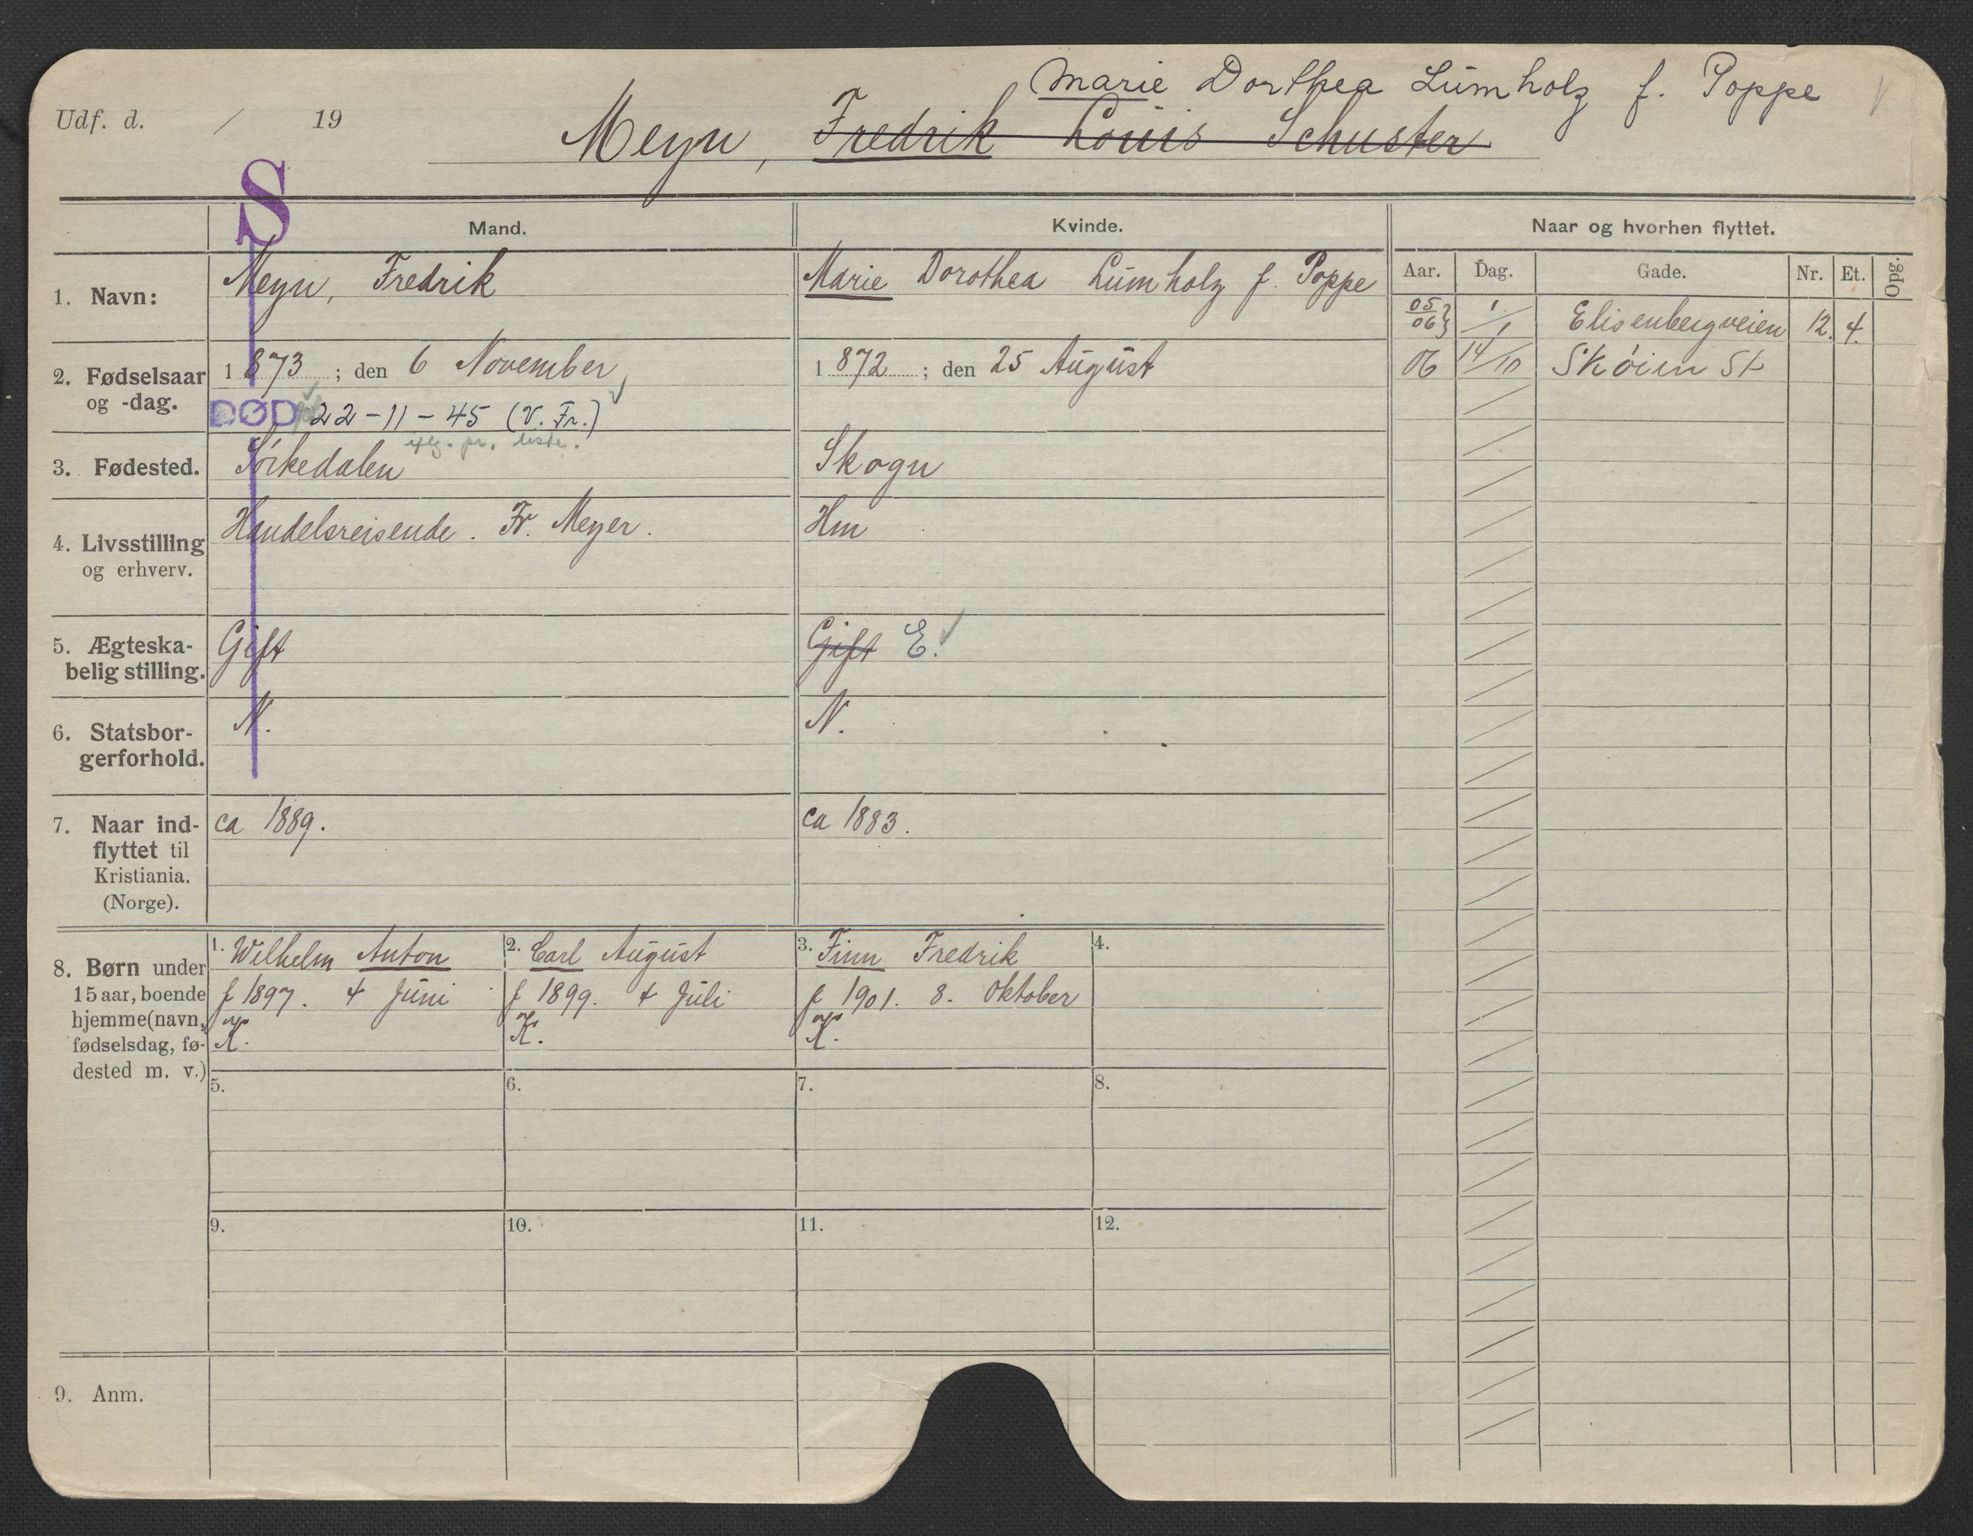 Marie Dorthea Lumholz f. Poppe
Udf. d. / 19
Meyn, Fredrik Louis Schuster
S
Mand. Kvinde. Naar og hvorhen flyttet.
Aar. Dag. Gade. Nr. Et. Opg.
1. Navn: Meyn, Fredrik Marie Dorothea Lumholz f. Poppe
05/06 } 1/1 Elisenbergveien 12. 4.
2. Fødselsaar og -dag. 1873; den 6 November 1872; den 25 August
06 14/10 Skøien St
DØD 22-11-45 (V. Fr.)
eflg. pr. liste.
3. Fødested. Sørkedalen Skogn
4. Livsstilling og erhverv. Handelsreisende. Fr. Meyer. Hm
5. Ægteska-
belig stilling. Gift Gift E.
6. Statsbor-
gerforhold. N. N.
7. Naar ind-
flyttet til
Kristiania.
(Norge). ca 1889. ca 1883.
8. Børn under
15 aar, boende
hjemme (navn,
fødselsdag, fø-
dested m. v.)
1. Wilhelm Anton
f 1897. 4 Juni
K.
2. Carl August
f 1899. 4 Juli
K.
3. Finn Fredrik
f 1901. 8. Oktober
K.
4.
5. 6. 7. 8.
9. 10. 11. 12.
9. Anm.